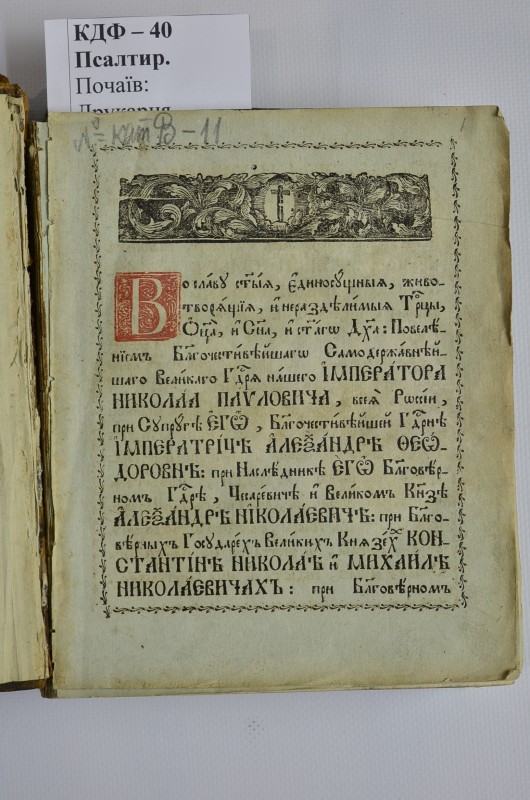 КДФ – 40
Псалтир.
Почаїв:
Друкарня
№ кат В-11
1
Во славу ст҃ыѧ, єдиносꙋщныѧ, живо-
творѧщїѧ, и нераздѣлимыѧ Трⷪ҇цы,
Ѻц҃а, и Сн҃а, и ст҃агѡ Дх҃а: Повелѣ-
нїемъ Бл҃гочестивѣйшагѡ Самодержавнѣй-
шагѡ Великагѡ Гдⷭ҇рѧ нашегѡ ІМПЕРАТОРА
НИКОЛАА ПАѴЛОВИЧА, всеѧ Рѡссїи,
при Сꙋпрꙋгѣ ЄГѠ, Бл҃гочестивѣйшей Гдⷭ҇рнѣ
ІМПЕРАТРІЧѢ АЛЕѮАНДРѢ ѲЕѠ-
ДОРОВНѢ: при Наслѣдникѣ ЄГѠ Бл҃говѣр-
номъ Гдⷭ҇рѣ, Чесаревичѣ и Великомъ Кнѧзѣ
АЛЕѮАНДРѢ НІКОЛАЕВИЧѢ: при Бл҃го-
вѣрныхъ Госꙋдарехъ Великихъ Кнѧзехъ КОН-
СТАНТІНѢ НИКОЛАѢ и МИХАИЛѢ
НИКОЛАЕВИЧАХЪ: при Бл҃говѣрномъ